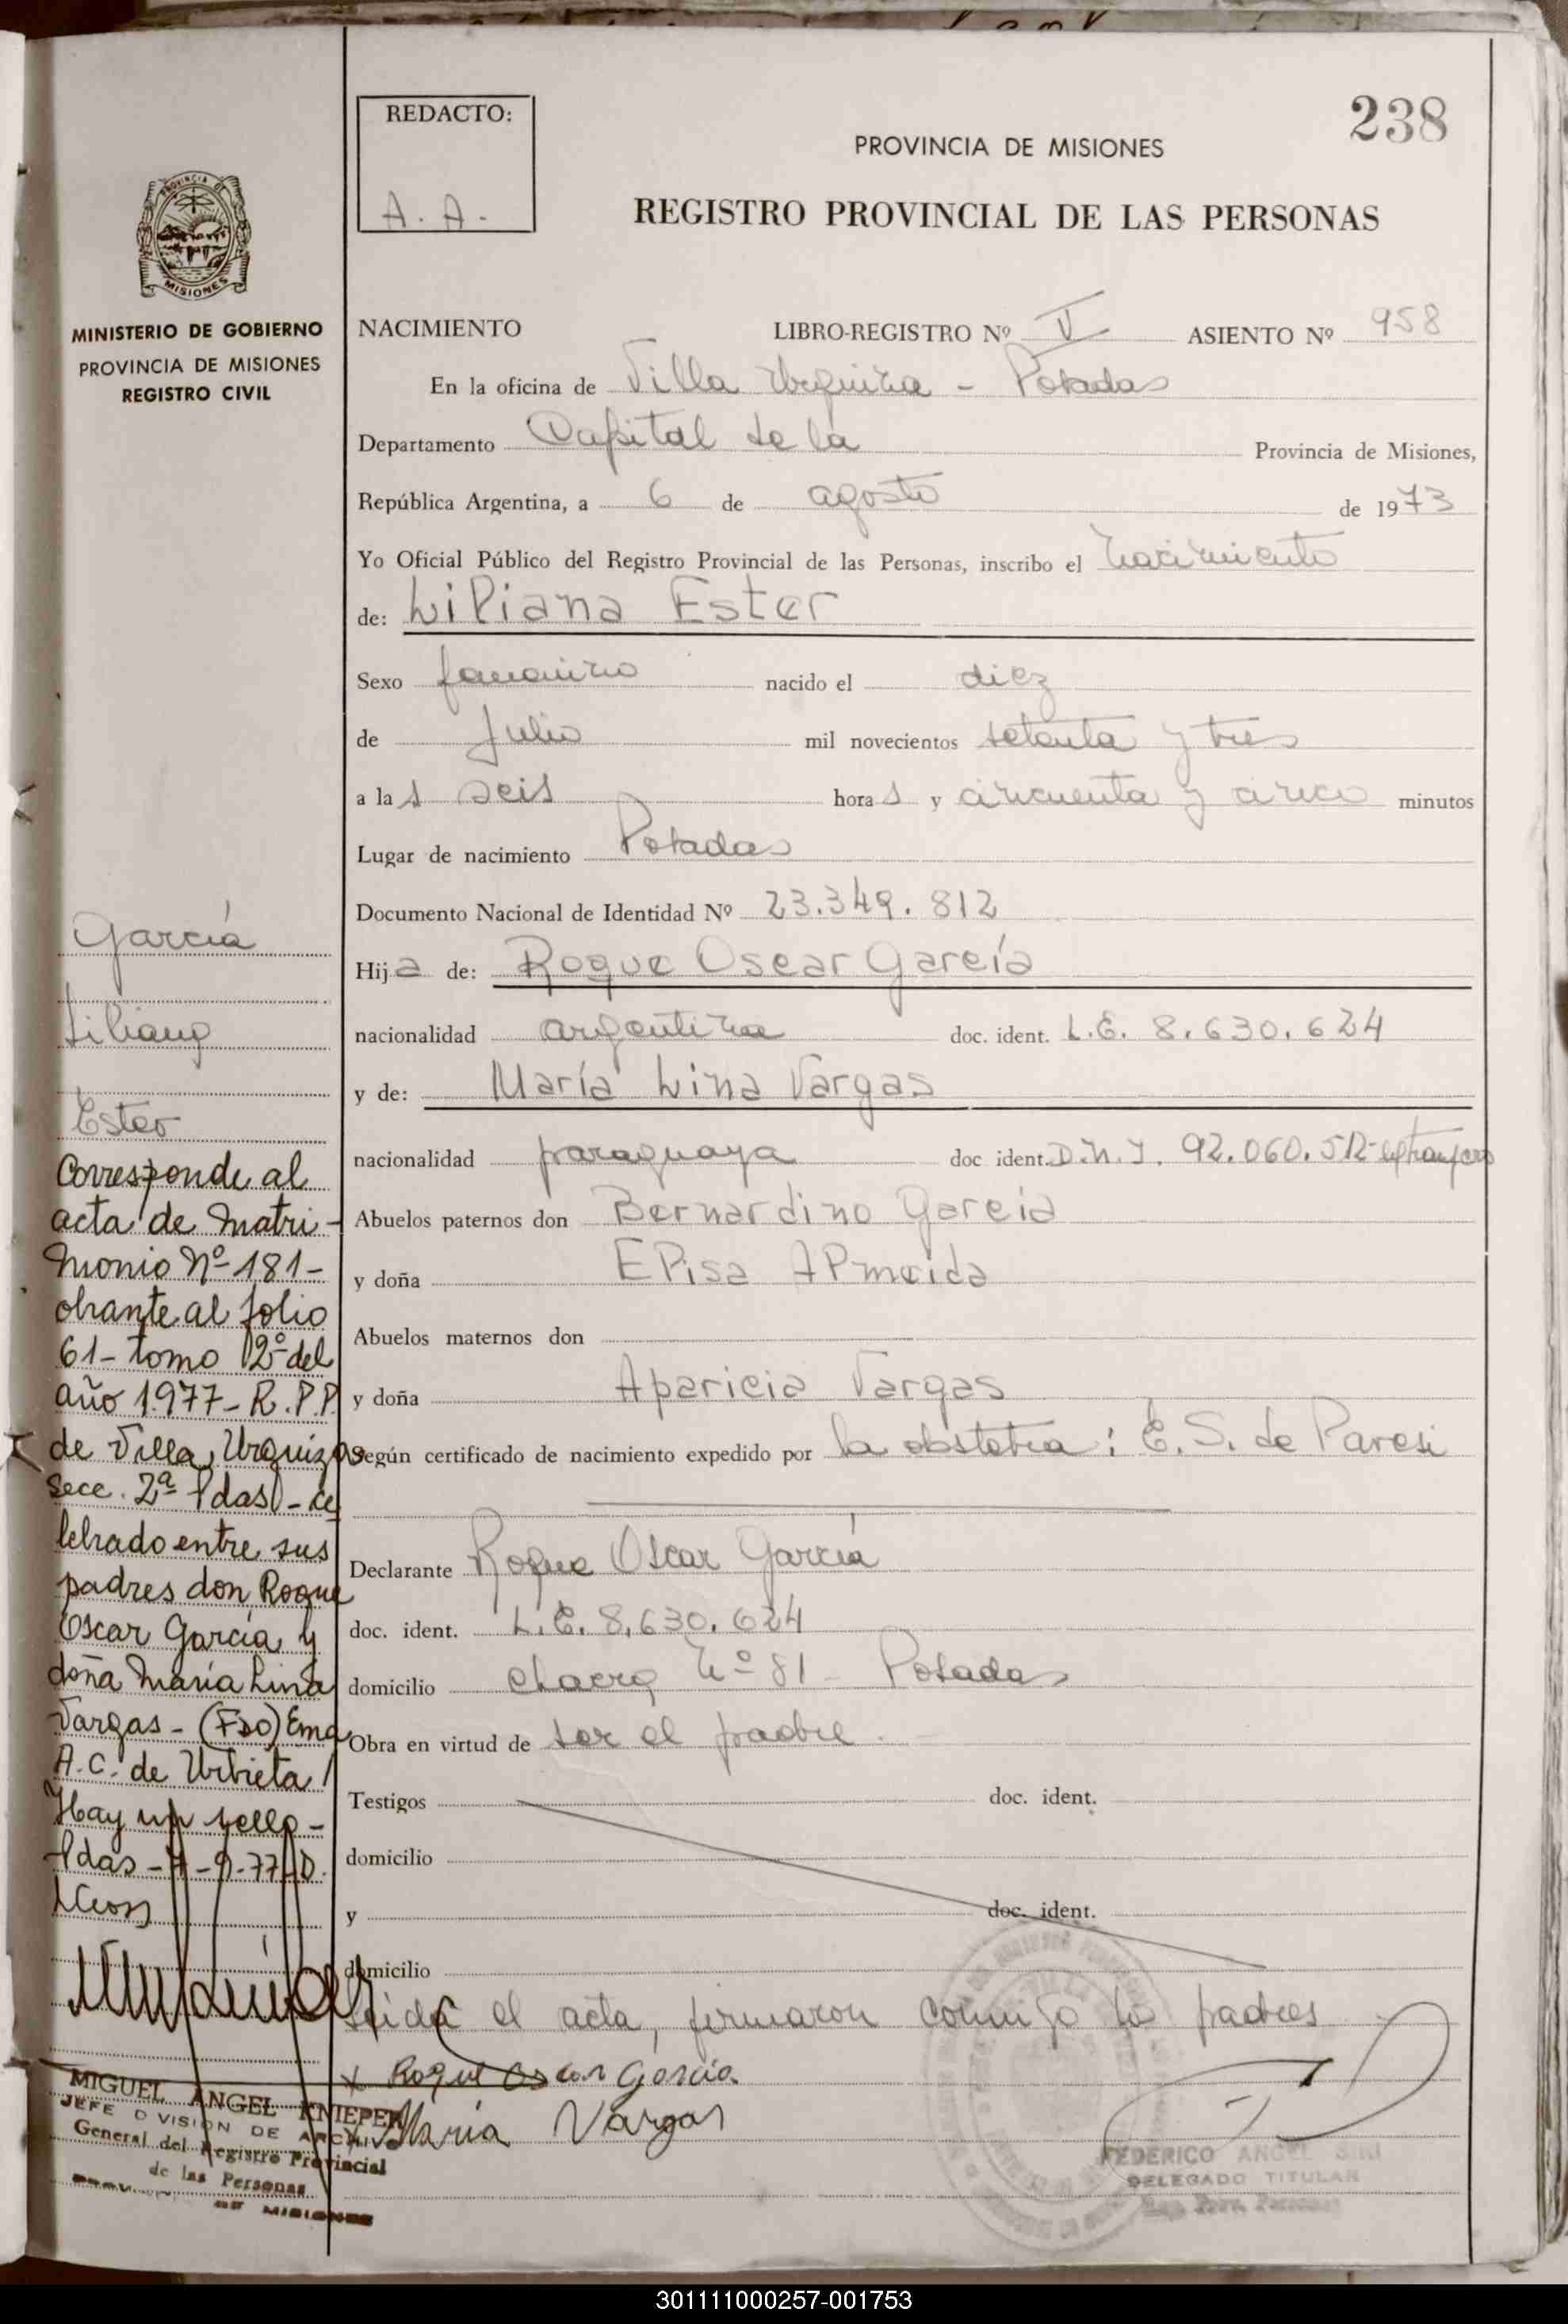 238
REDACTO:
A. A.
PROVINCIA DE MISIONES
REGISTRO PROVINCIAL DE LAS PERSONAS
PROVINCIA DE
MISIONES
MINISTERIO DE GOBIERNO
PROVINCIA DE MISIONES
REGISTRO CIVIL
NACIMIENTO LIBRO-REGISTRO Nº V ASIENTO Nº 958
En la oficina de Villa Urquiza - Posadas
Departamento Capital de la Provincia de Misiones,
República Argentina, a 6 de agosto de 1973
Yo Oficial Público del Registro Provincial de las Personas, inscribo el nacimiento
de: Liliana Ester
Sexo femenino nacido el diez
de Julio mil novecientos setenta y tres
a las seis horas y cincuenta y cinco minutos
Lugar de nacimiento Posadas
Documento Nacional de Identidad Nº 23.349.812
Hija de: Roque Oscar García
nacionalidad argentina doc. ident. L.E. 8.630.624
y de: María Lina Vargas
nacionalidad paraguaya doc ident. D.N.I. 92.060.512 extranjero
Abuelos paternos don Bernardino García
y doña Elisa Almeida
Abuelos maternos don
y doña Aparicia Vargas
según certificado de nacimiento expedido por la obstetra: E. S. de Paresi
Declarante Roque Oscar García
doc. ident. L.E. 8.630.624
domicilio chacra Nº 81 - Posadas
Obra en virtud de ser el padre.
Testigos doc. ident.
domicilio
y doc. ident.
domicilio
Leida el acta, firmaron conmigo los padres
x Roque Oscar García
x María Vargas
FEDERICO ANGEL
DELEGADO TITULAR
García
Liliana
Ester
Corresponde al
acta de Matri-
monio Nº 181-
obrante al folio
61- tomo 2º del
año 1977- R.P.P.
de Villa Urquiza
Secc. 2ª Pdas - ce
lebrado entre sus
padres don Roque
Oscar García y
doña María Lina
Vargas - (Fdo) Ema
A.C. de Urbieta
Hay un sello -
Pdas - 7-9-77
MIGUEL ANGEL KNIEPER
JEFE DIVISION DE ARCHIVO
General del Registro Provincial
de las Personas
DE MISIONES
301111000257-001753